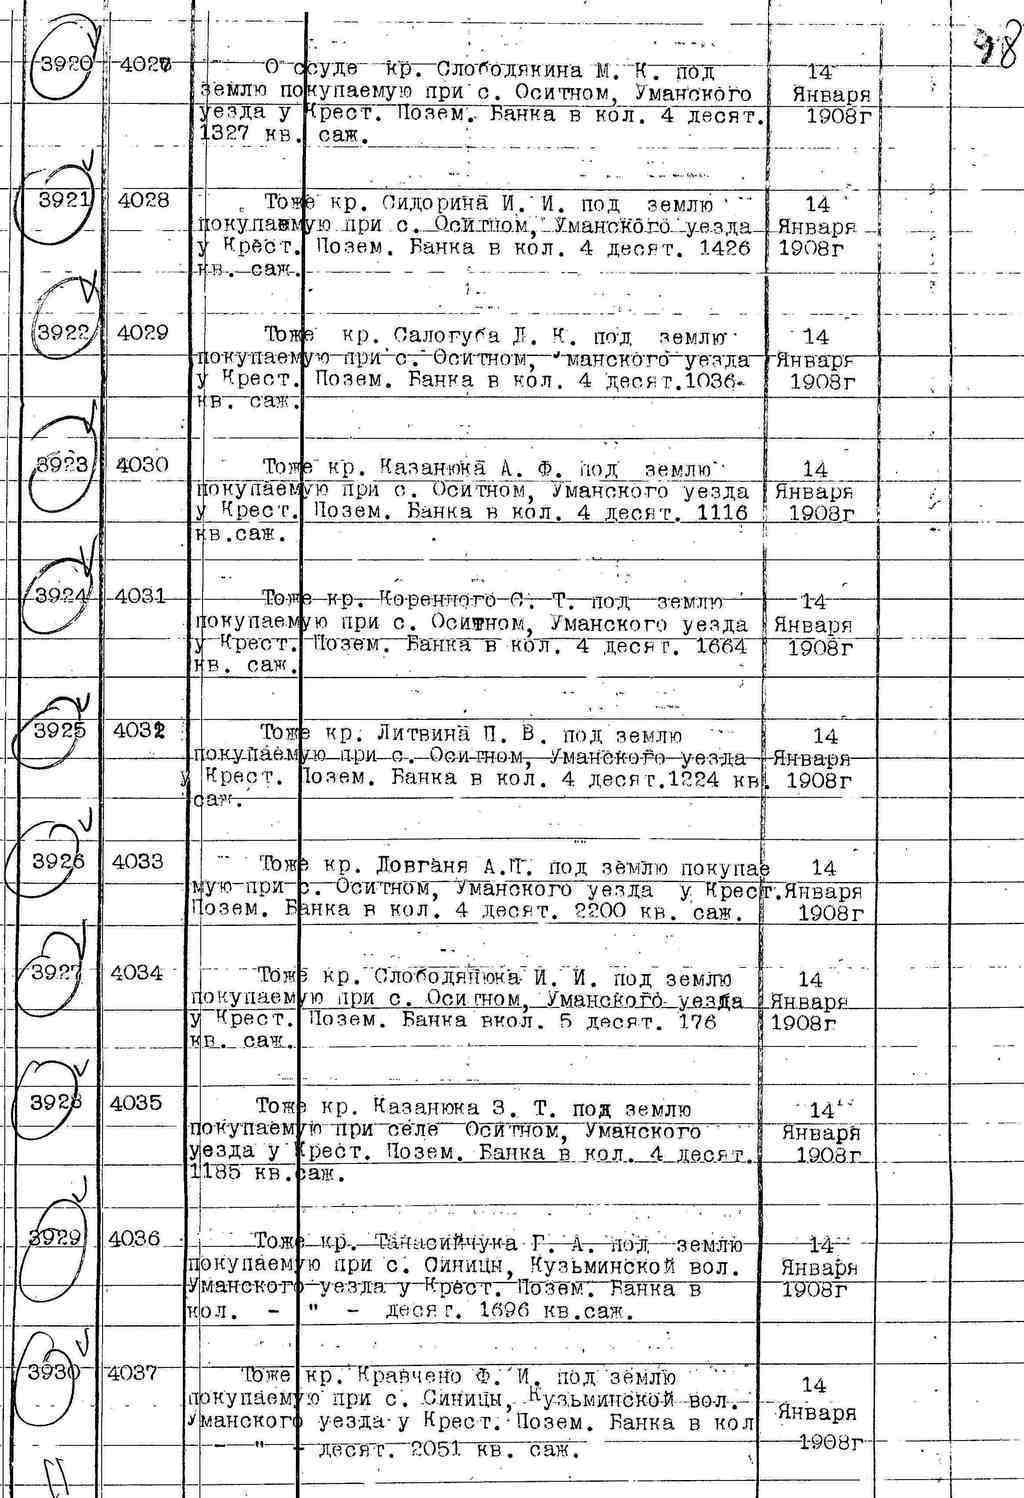 98
3920 4027 О ссуде кр. Слободянина М. К. под 14
землю покупаемую при с. Оситном, Уманского Января
уезда у Крест. Позем. Банка в кол. 4 десят. 1908г
1327 кв. саж.
3921 4028 Тоже кр. Сидорина И. И. под землю 14
покупаемую при с. Оситном, Уманского уезда Января
у Крест. Позем. Банка в кол. 4 десят. 1426 1908г
кв. саж.
3922 4029 Тоже кр. Салогуба Д. К. под землю 14
покупаемую при с. Оситном, Уманского уезда Января
у Крест. Позем. Банка в кол. 4 десят.1036 1908г
кв. саж.
3923 4030 Тоже кр. Казанюка А. Ф. под землю 14
покупаемую при с. Оситном, Уманского уезда Января
у Крест. Позем. Банка в кол. 4 десят. 1116 1908г
кв.саж.
3924 4031 Тоже кр. Коренного С. Т. под землю 14
покупаемую при с. Оситном, Уманского уезда Января
у Крест. Позем. Банка в кол. 4 десят. 1664 1908г
кв. саж.
3925 4032 Тоже кр. Литвина П. В. под землю 14
покупаемую при с. Оситном, Уманского уезда Января
у Крест. Позем. Банка в кол. 4 десят.1224 кв. 1908г
саж.
3926 4033 Тоже кр. Довганя А.П. под землю покупае 14
мую при с. Оситном, Уманского уезда у Крест. Января
Позем. Банка в кол. 4 десят. 2200 кв. саж. 1908г
3927 4034 Тоже кр. Слободянюка И. И. под землю 14
покупаемую при с. Оситном, Уманского уезда Января
у Крест. Позем. Банка вкол. 5 десят. 176 1908г
кв. саж.
3928 4035 Тоже кр. Казанюка З. Т. под землю 14
покупаемую при селе Оситном, Уманского Января
уезда у Крест. Позем. Банка в кол. 4 десят. 1908г
1185 кв.саж.
3929 4036 Тоже кр. Танасийчука Г. А. под землю 14
покупаемую при с. Синицы, Кузьминской вол. Января
Уманского уезда у Крест. Позем. Банка в 1908г
кол. - " - десят. 1696 кв.саж.
3930 4037 Тоже кр. Кравчено Ф. И. под землю 14
покупаемую при с. Синицы, Кузьминской вол. Января
Уманского уезда у Крест. Позем. Банка в кол 1908г
- " - десят. 2051 кв. саж.